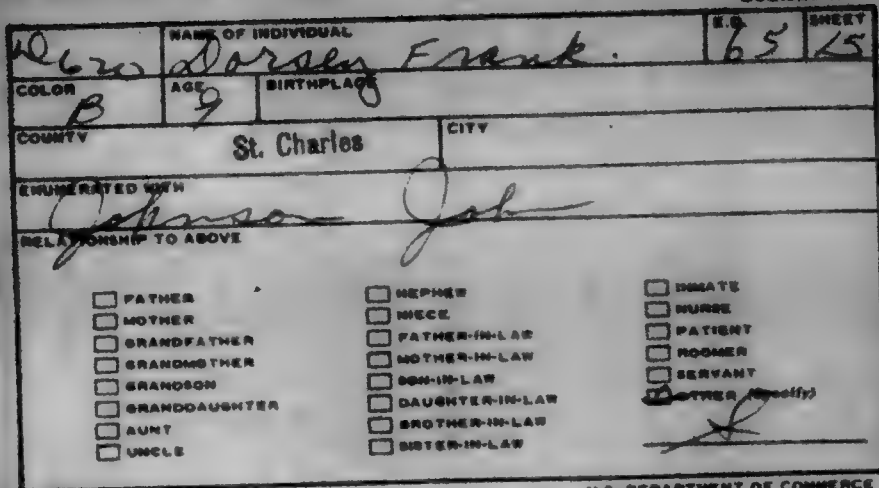 NAME OF INDIVIDUAL E.D. SHEET
D620 Dorsey Frank. 65 15
COLOR AGE BIRTHPLACE
B 9
COUNTY St. Charles CITY
ENUMERATED WITH
Johnson John
RELATIONSHIP TO ABOVE
FATHER
MOTHER
GRANDFATHER
GRANDMOTHER
GRANDSON
GRANDDAUGHTER
AUNT
UNCLE
NEPHEW
NIECE
FATHER-IN-LAW
MOTHER-IN-LAW
SON-IN-LAW
DAUGHTER-IN-LAW
BROTHER-IN-LAW
SISTER-IN-LAW
INMATE
NURSE
PATIENT
ROOMER
SERVANT
OTHER (Specify)
U.S. DEPARTMENT OF COMMERCE